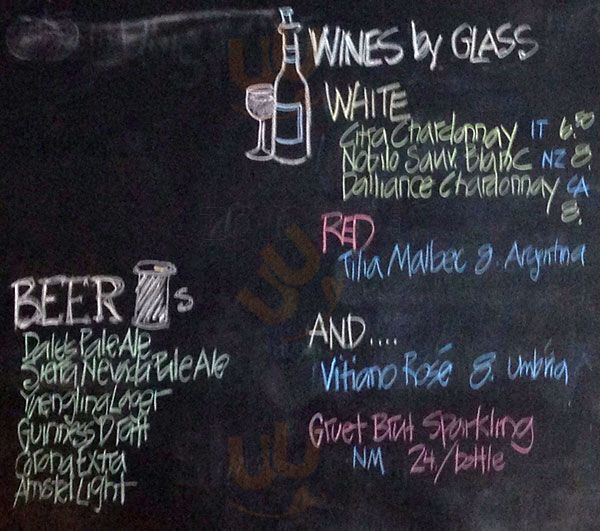 WINES by GLASS
WHITE
Citra Chardonnay IT 6.50
Nobilo Sauv. Blanc NZ 8.
Dalliance Chardonnay CA
8.
RED
Tilia Malbec 8. Argentina
AND....
Vitiano Rosé 8. Umbria
Gruet Brut Sparkling
NM 24./bottle
BEER s
Dale's Pale Ale
Sierra Nevada Pale Ale
Yuengling Lager
Guinness Draft
Corona Extra
Amstel Light